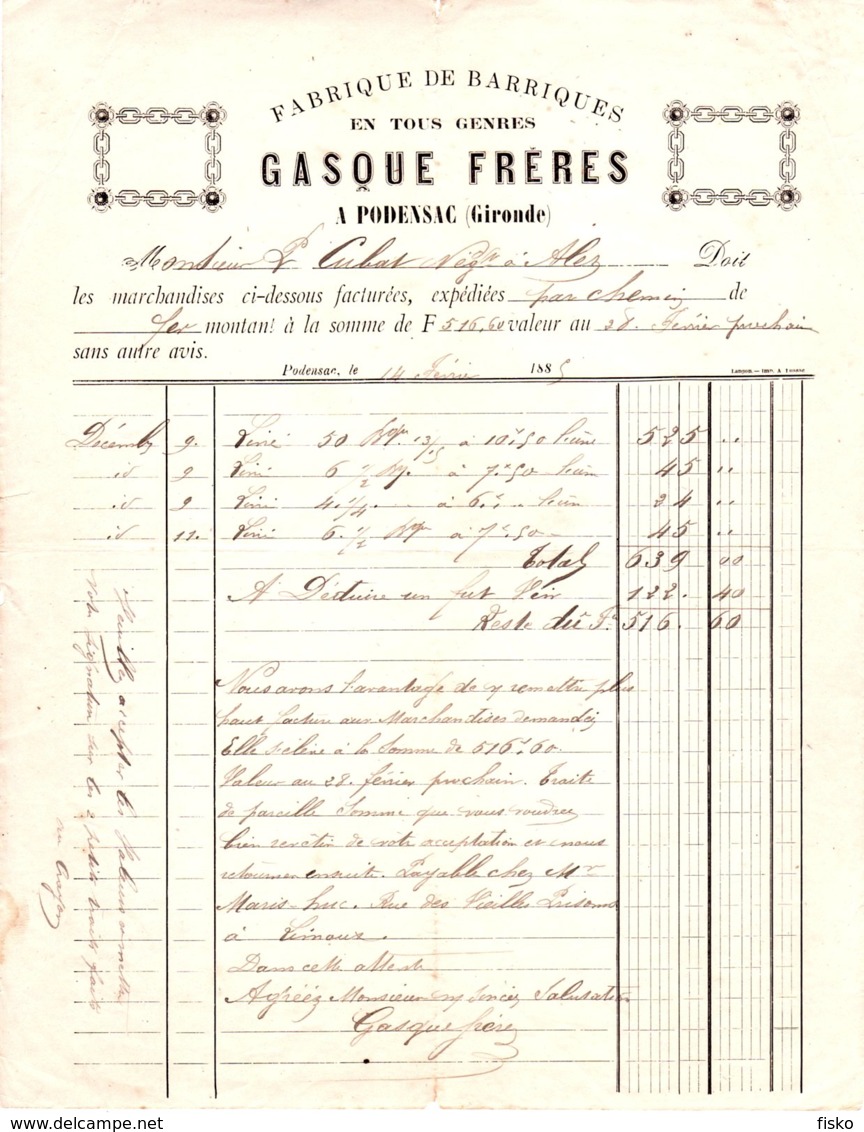 FABRIQUE DE BARRIQUES
EN TOUS GENRES
GASQUE FRÈRES
A PODENSAC (Gironde)
Monsieur P. Cubat Négt à Alet Doit
les marchandises ci-dessous facturées, expédiées par chemin de
fer montant à la somme de F 516,60 valeur au 28. Février prochain
sans autre avis.
Podensac, le 14 Févrie 1885
Langon. — Imp. A
Décemb 9. Livré 50 Bques 13/15 à 10f,50 l'une 525 "
id 9 Livré 6 1/2 Bq. à 7f,50 l'une 45 "
id 9 Livré 4 1/4. à 6f, " l'une 24 "
id 11. Livré 6. 1/2 Bq à 7f,50 45 "
Total 639 00
A Déduire un fut 122. 40
Reste dû F. 516. 60
Nous avons l'avantage de y remettre plus
haut facture aux Marchandises demandées
Elle s'élève à la Somme de 516f,60.
Valeur au 28. février prochain. Traite
de pareille Somme que vous voudrez
bien revêtir de votre acceptation et nous
retourner ensuite. Payable chez Mr
Maris-huc. Rue des Vieilles Prisons
à Limoux.
Dans cette attente
Agréez Monsieur my sincères Salutation
Gasque frères
Veuillez accepter les Valeurs et mettre
Votre signature sur les 2 petits traits faits
au Crayon
fisko